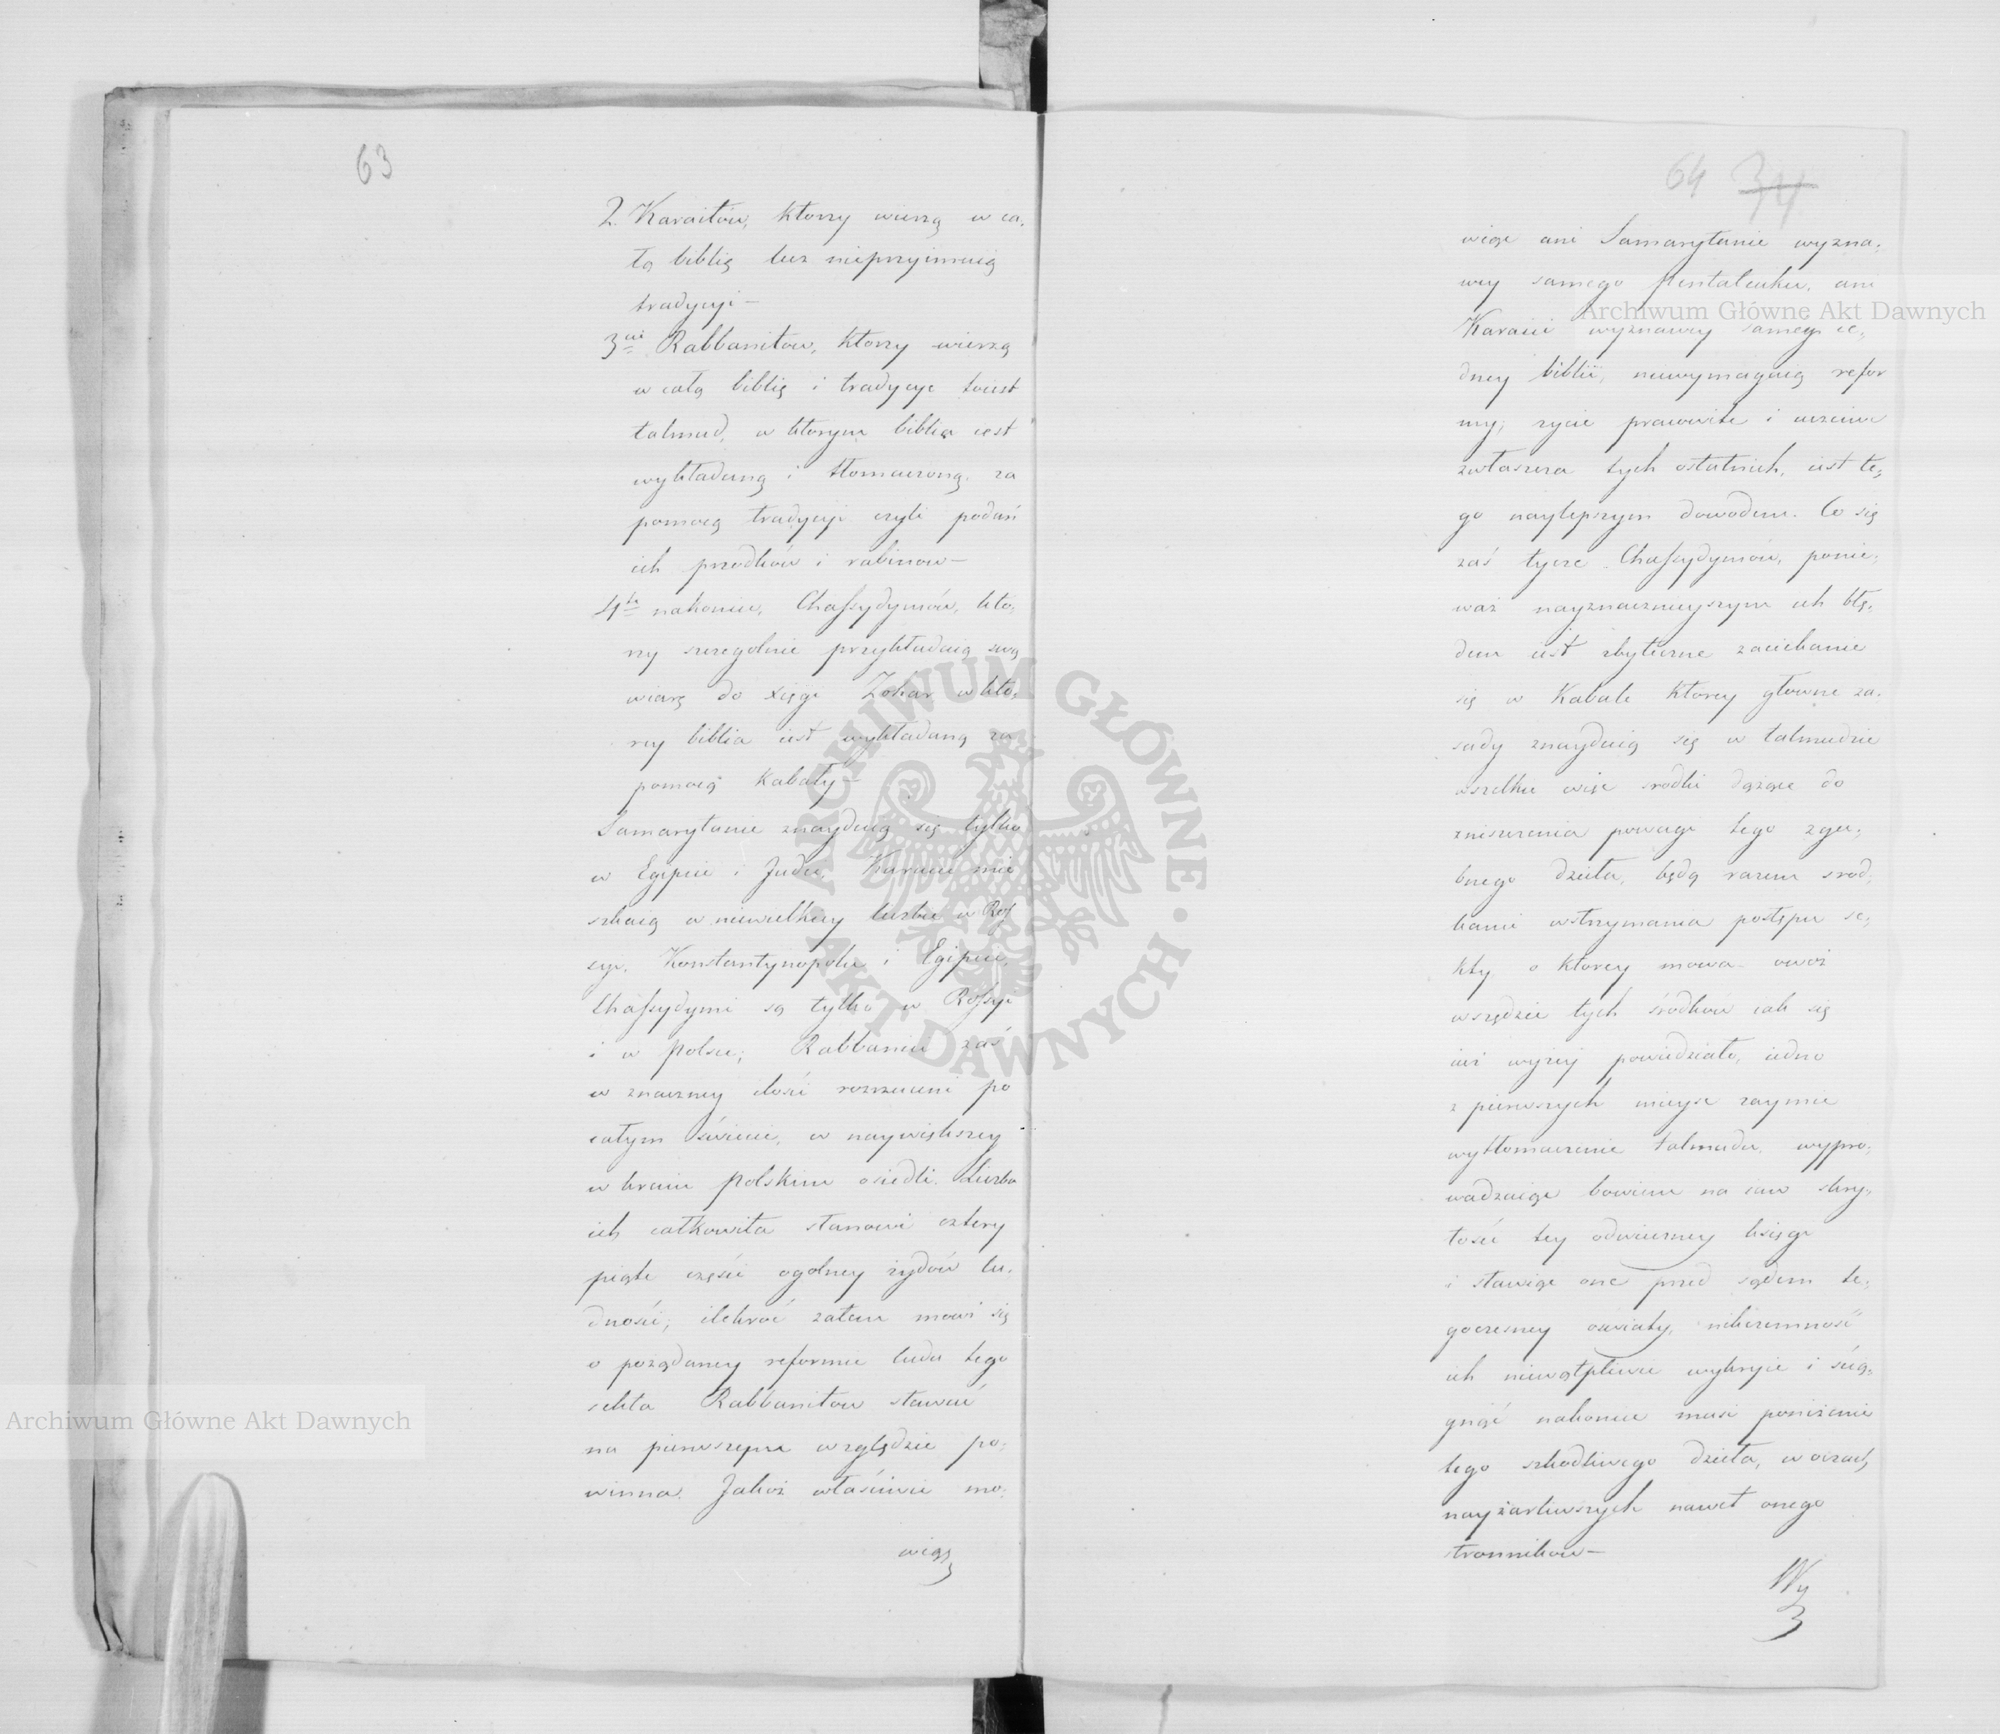 63
2. Karaitów, którzy wierzą w ca,
łą biblię lecz nieprzyimuią
tradycyi —
3cie Rabbanitów, którzy wierzą
w całą biblię i tradycye to iest
talmud, w którym biblia iest
wykładaną i tłomaczoną za
pomocą tradycyi czyli podań
ich przodków i rabinow —
4te nakoniec, Chassydymów, któ,
rzy szczegolnie przykładaią swą
wiarę do xięgi Zohar w któ,
rey biblia iest wykładaną za
pomocą kabały —
Samarytanie znayduią się tylko
w Egipcie i Judei, Karaici mie
szkaią w niewielkiey liczbie w Ros
syi, Konstantynopolu i Egipcie,
Chassydymi są tylko w Rossyi
i w Polsce; Rabbanici zaś
w znaczney ilości rozrzuceni po
całym świecie, w naywiększey
w kraiu polskim osiedli. Liczba
ich całkowita stanowi cztery
piąte części ogolney żydów lu,
dności; ilekroć zatem mówi się
o pożądaney reformie ludu tego
sekta Rabbanitów stawać
na pierwszym względzie po,
winna. Jakoż właściwie mó,
wiąc
64 34
wiąc ani Samarytanie wyzna,
wcy samego Pentateuku, ani
Karaici wyznawcy samey ie,
dney biblii, niewymagaią refor
my; życie pracowite i uczciwe
zwłaszcza tych ostatnich, iest te,
go naylepszym dowodem. Co się
zaś tycze Chassydymów, ponie,
waż nayznacznieyszym ich błę,
dem iest zbyteczne zaciekanie
się w Kabale którey głowne za,
sady znayduią się w talmudzie
wszelkie więc srodki dążące do
zniszczenia powagi tego zgu,
bnego dzieła, będą razem srod,
kami wstrzymania postępu se,
kty o którey mowa — owoż
w rzędzie tych środków iak się
iuż wyżey powiedziało, iedno
z pierwszych mieysc zaymie
wytłomaczenie talmudu, wypro,
wadzaiąc bowiem na iaw skry,
tości tey odwieczney księgi
i stawiąc one przed sądem te,
goczesney oświaty, nikczemność
ich niewątpliwie wykryie i ścią,
gnąć nakoniec musi poniżenie
tego szkodliwego dzieła, w oczach
nayżarliwszych nawet onego
stronników —
Wy
Archiwum Główne Akt Dawnych
Archiwum Główne Akt Dawnych
ARCHIWUM GŁÓWNE AKT DAWNYCH